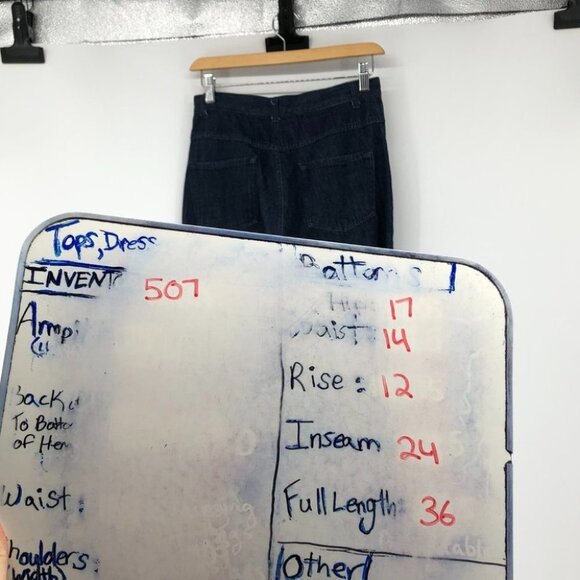 Tops, Dress
INVENT 507
Armpi
Back
To Botto
of Hem
Waist:
houlders:
width)
Bottoms
Hips 17
Waist 14
Rise: 12
Inseam 24
Full Length 36
Other